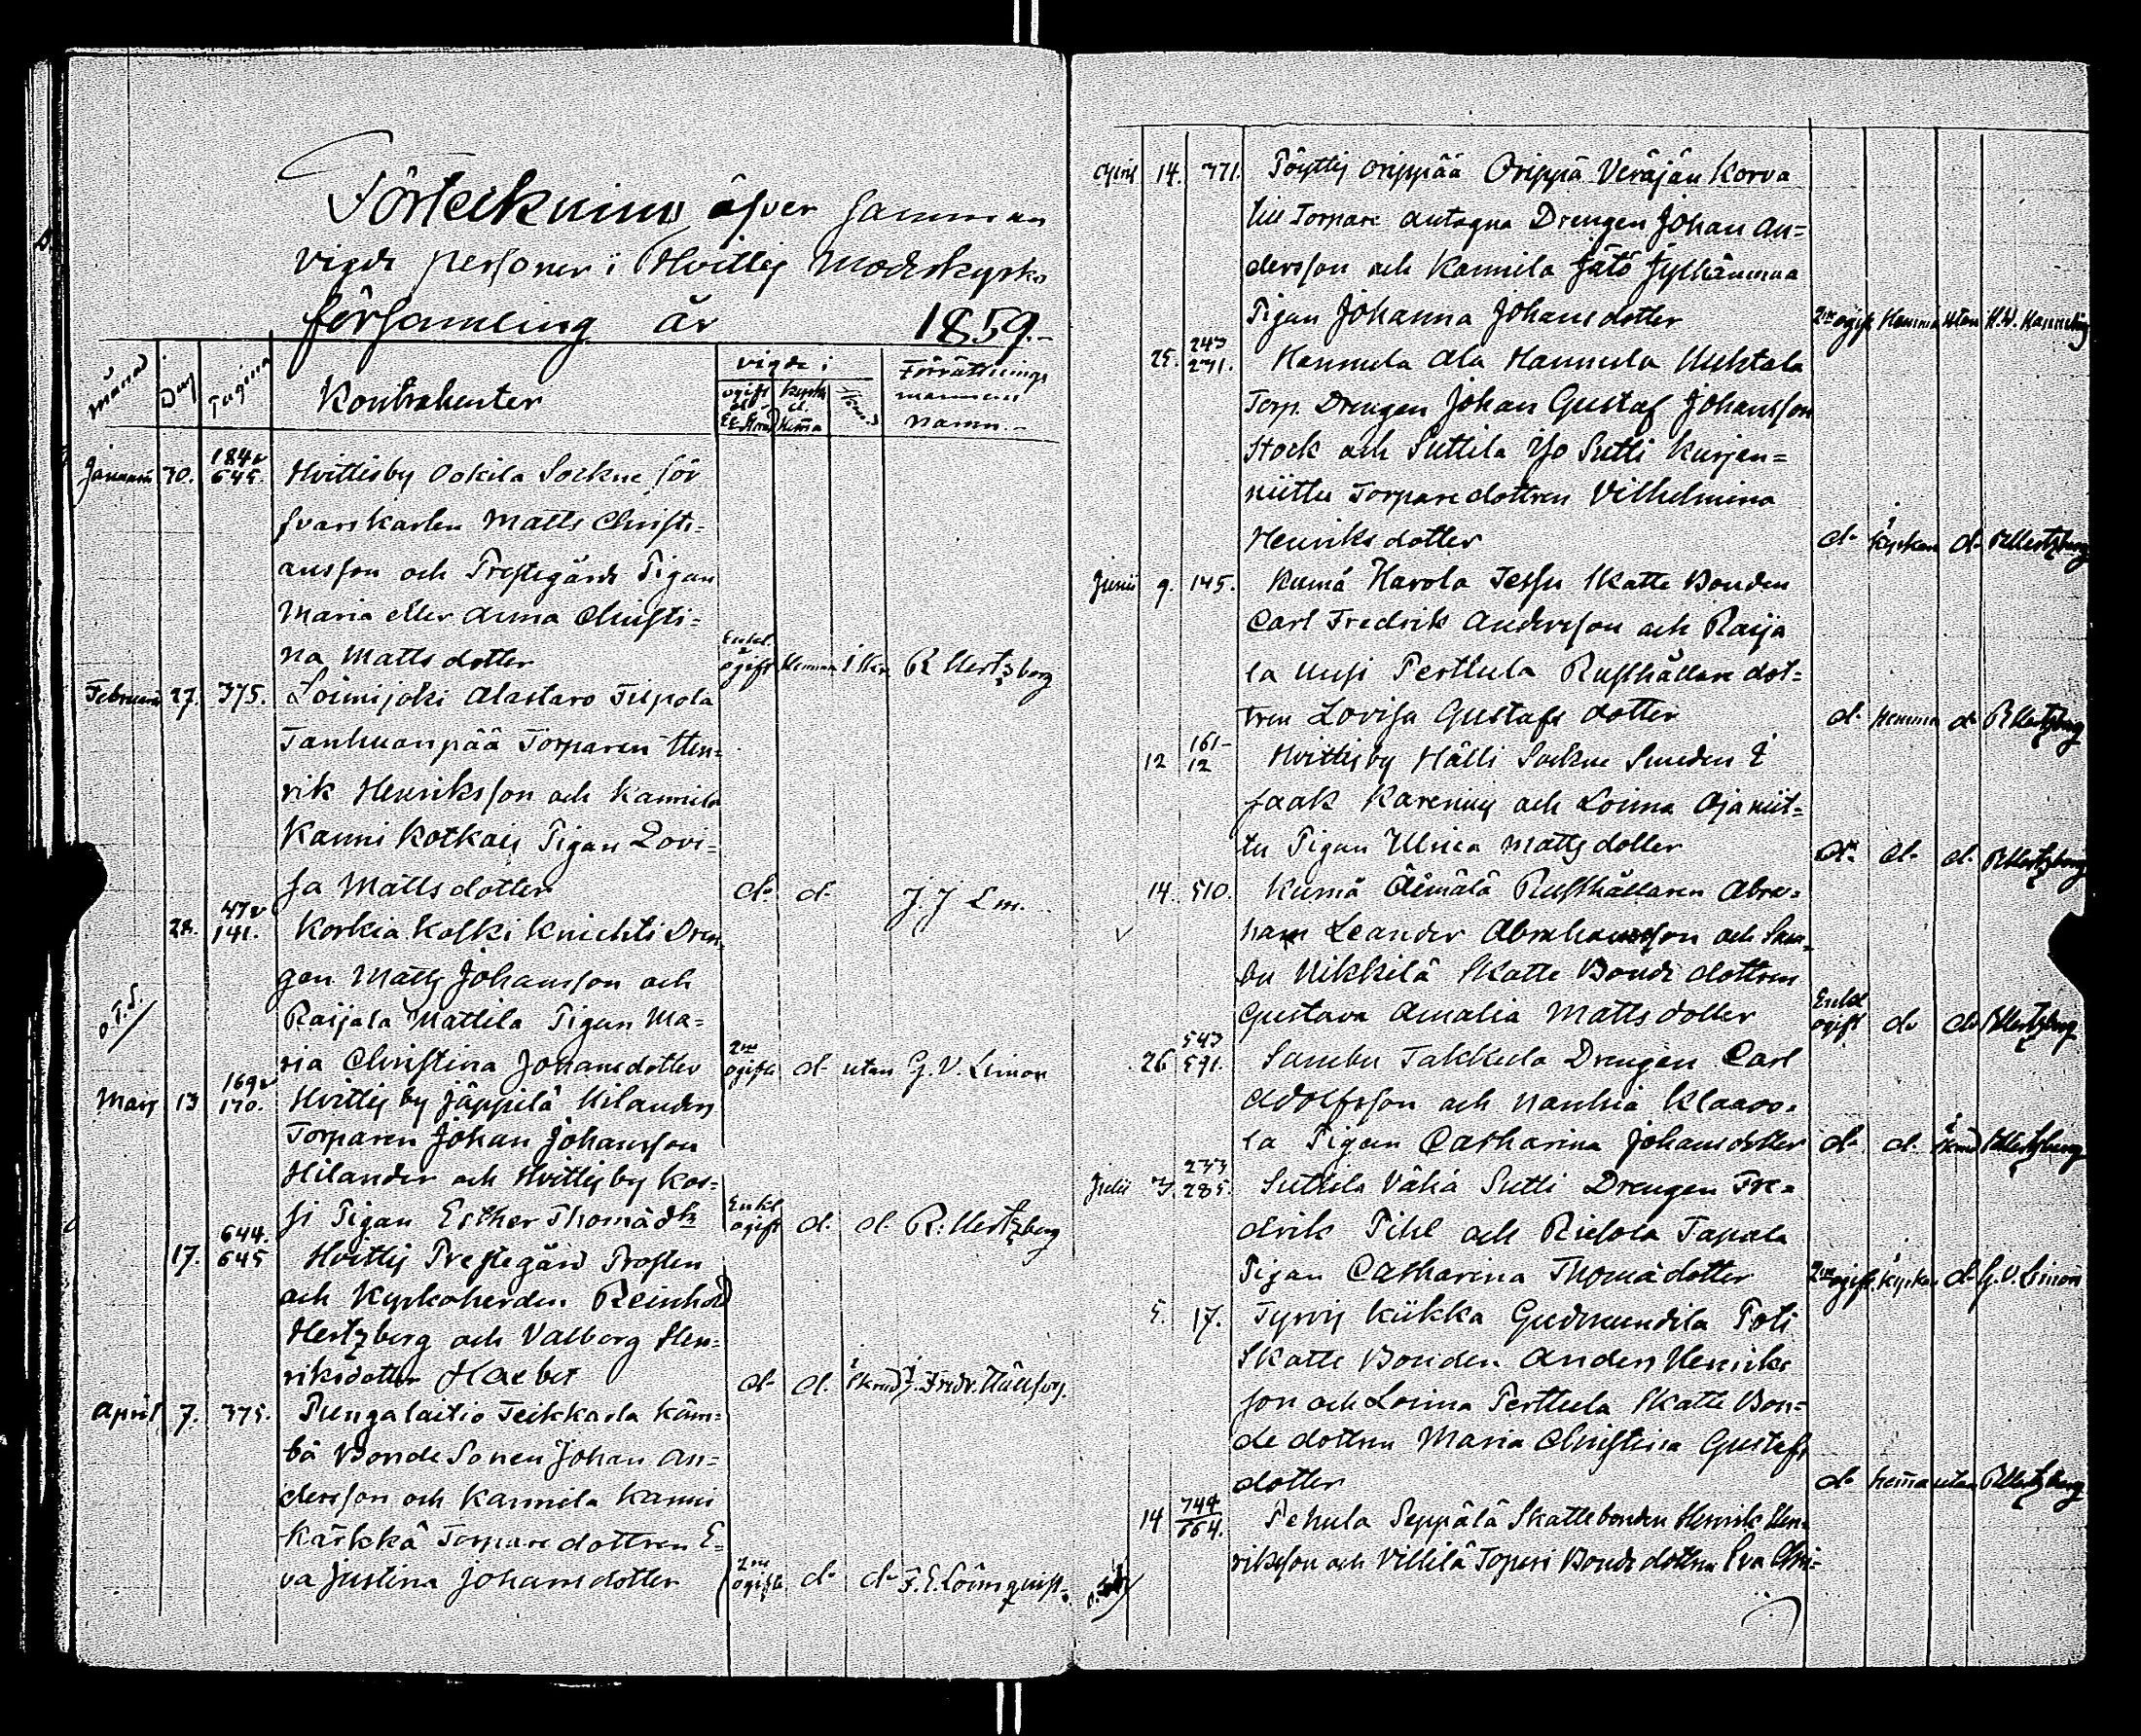 Förteckning öfver samman
vigde personer i Hvittis Moderkyrko
församling år 1859.-
månad Dag Pagina Kontrahenter vigde i Förrättnings
ogift kyrka mannens
namn.-
Januari 30. 184 645. Hvittisby Ookila Sockne för
svarskarlen Matts Christi=
ansson och Prestegårds Pigan
Maria eller Anna Christi=
na Mattsdotter Enkl. ogift Hemma R Hertzberg
Februari 27. 375. Loimijoki Alastaro Tilpola
Tanhuanpää Torparen Hen=
rik Henriksson och Kannila
Kanni Kotkais Pigan Lovi=
sa Mattsdotter do do J. J. Lm.
28. 47 141. Korkia Koski Knichti Dren=
gen Matts Johansson och
Raijala Mattila Pigan Ma=
ria Christina Johansdotter 2ne ogifte do utan G. V. Limon
Mars 13 169 170. Hvittisby Jäppilä Hilanders
Torparen Johan Johansson
Hilander och Hvittisby Kos=
si Pigan Esther Thomædtr Enkl ogift do do R. Hertzberg
17. 644. 645 Hvittis Prestegård Prosten
och Kyrkoherden Reinhold
Hertzberg och Valborg Hen=
riksdotter do do i skrud
April 7. 375. Pungalaitio Teikkarla Käm=
bä Bonde Sonen Johan An=
dersson och Kannila Kanni
Kärkkä Torpare dottren E=
va Justina Johansdotter 2ne ogifte do do F. E. Lönnquist.
April 14. 371. Pöyttis Orippää Orippä Veräjän Korva
till Torpare antagna Drengen Johan An=
dersson och Kannila Jätö
Pigan Johanna Johansdotter 2ne ogift Hemma utan
25. 243 271. Hannula Ala Hannula Uuhtala
Torp. Drengen Johan Gustaf Johansson
Stock och Suttila Yso Sutti Kurjen=
niittu Torpare dottren Vilhelmina
Henriksdotter do i Kyrkan do R Hertzberg
Junii 9. 145. Kumå Harola Tessu Skatte Bonden
Carl Fredrik Andersson och Raija
la Uusi Perttula Rusthållare dot=
tren Lovisa Gustafs dotter do hemma do R Hertzberg
12 161- 12 Hvittisby Hälli Sockne Smeden I
saak Karenius och Loima Ojaniit=
tu Pigan Ulrica Mattsdotter do do do R Hertzberg
14. 510. Kumå Äimälä Rusthållaren Abra=
ham Leander Abrahamsson och Sam=
bu Uikkilä Skatte Bonde dottren
Gustava Amalia Mattsdotter Enkl ogift do do R Hertzberg
26 543 591. Sambu Takkula Drengen Carl
Adolfsson och Nanhia Klaavo=
la Pigan Catharina Johansdotter do do i skrud R Hertzberg
Julii 3. 233 285. Suttila Vähä Sutti Drengen Fre=
drik Pihl och Riesola Tapala
Pigan Catharina Thomædotter 2ne ogift. i Kyrkan do G. V. Limon
5. 17. Tyrvis Kiikka Gudmundila Poti
Skatte Bonden Anders Henriks
son och Loima Perttula Skatte Bon=
de dottren Maria Christina Gustafs
dotter do hema utan R Hertzberg
14 744 664. Pehula Seppälä Skattebonden Henrik Hen=
riksson och Villilä Toperi Bonde dottren Eva Chri=